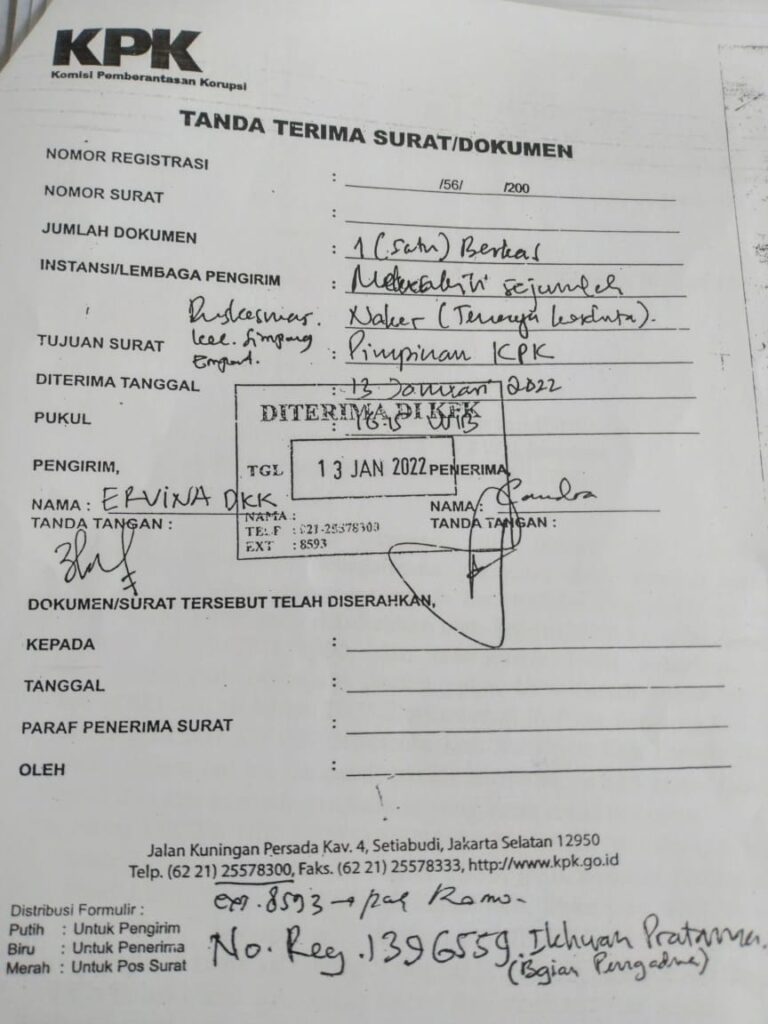 KPK
Komisi Pemberantasan Korupsi
TANDA TERIMA SURAT/DOKUMEN
NOMOR REGISTRASI : /56/ /200
NOMOR SURAT :
JUMLAH DOKUMEN : 1 (Satu) Berkas
INSTANSI/LEMBAGA PENGIRIM : sejumlah
Puskesmas. Naker (Tenaga
kec. Simpang
Empat.
TUJUAN SURAT : Pimpinan KPK
DITERIMA TANGGAL : 13 Januari 2022
PUKUL : WIB
DITERIMA DI KPK
TGL 13 JAN 2022
NAMA :
TELF : 021-25578300
EXT : 8593
PENGIRIM, PENERIMA,
NAMA : ERVINA DKK NAMA : Candra
TANDA TANGAN : TANDA TANGAN :
DOKUMEN/SURAT TERSEBUT TELAH DISERAHKAN,
KEPADA :
TANGGAL :
PARAF PENERIMA SURAT :
OLEH :
Jalan Kuningan Persada Kav. 4, Setiabudi, Jakarta Selatan 12950
Telp. (62 21) 25578300, Faks. (62 21) 25578333, http://www.kpk.go.id
ext. 8593 → pak Romo.
Distribusi Formulir :
Putih : Untuk Pengirim
Biru : Untuk Penerima
Merah : Untuk Pos Surat
No. Reg. 1396559. Ikhwan Pratama.
(Bgian